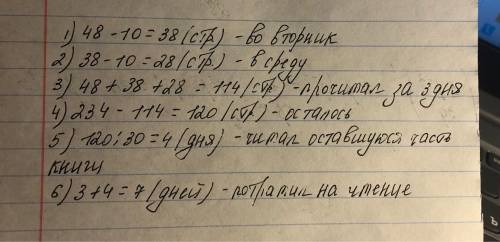 1) 48 - 10 = 38 (стр) - во вторник
2) 38 - 10 = 28 (стр.) - в среду
3) 48 + 38 + 28 = 114 (стр) - прочитал за 3 дня
4) 234 - 114 = 120 (стр) - осталось
5) 120 : 30 = 4 (дня) - читал оставшуюся часть
книги
6) 3 + 4 = 7 (дней) - потратил на чтение